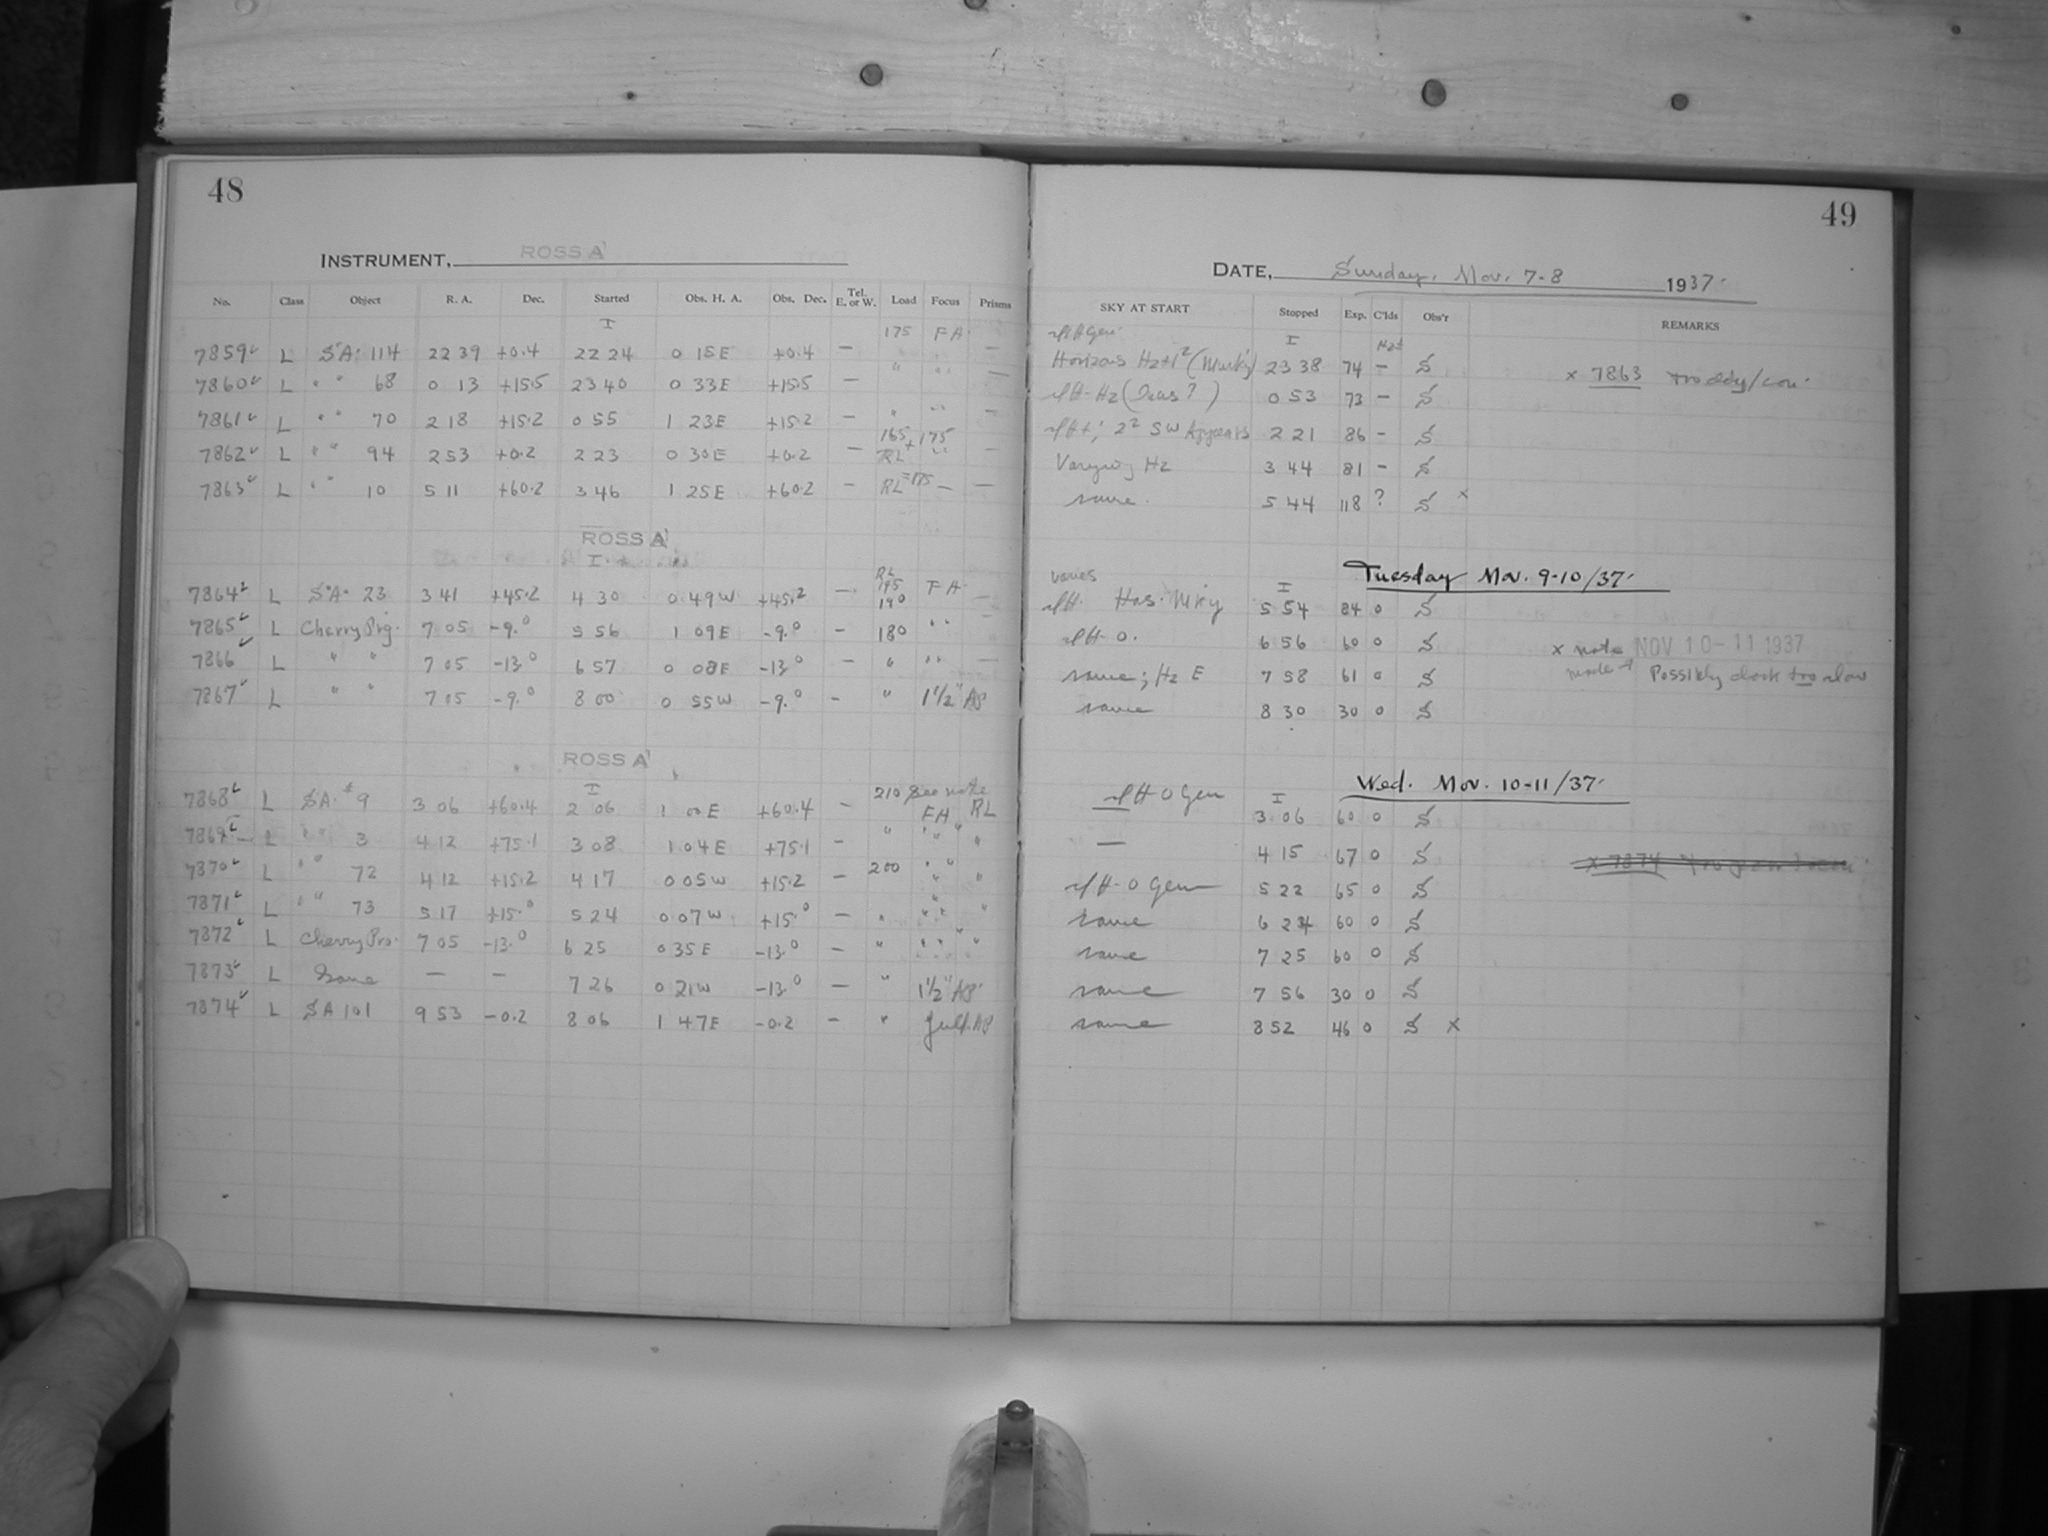 48
INSTRUMENT, ROSS A
No. Class Object R. A. Dec. Started Obs. H. A. Obs. Dec. Tel. E. or W. Load Focus Prisms
I 175 FA
7859 L SA 114 22 39 +0.4 22 24 0 15E +0.4 — " " " —
7860 L " " 68 0 13 +15.5 23 40 0 33E +15.5 — —
7861 L " " 70 2 18 +15.2 0 55 1 23E +15.2 — " " " —
7862 L " " 94 2 53 +0.2 2 23 0 30E +0.2 — 165 + 175 RL " " —
7863 L " " 10 5 11 +60.2 3 46 1 25E +60.2 — RL = 175 — —
ROSS A
I
7864 L SA 23 3 41 +45.2 4 30 0 49W +45.2 — RL 195 190 FA —
7865 L Cherry Prg. 7 05 -9.0 5 56 1 09E -9.0 — 180 " "
7866 L " " 7 05 -13.0 6 57 0 08E -13.0 — " " " —
7867 L " " 7 05 -9.0 8 00 0 55W -9.0 — " 1 1/2" AP
ROSS A
I 210 See note
7868 L SA # 9 3 06 +60.4 2 06 1 00E +60.4 — FA RL
7869 L " " 3 4 12 +75.1 3 08 1 04E +75.1 — " " " "
7870 L " " 72 4 12 +15.2 4 17 0 05W +15.2 — 200 " " "
7871 L " " 73 5 17 +15.0 5 24 0 07W +15.0 — " " " "
7872 L Cherry Pro. 7 05 -13.0 6 25 0 35E -13.0 — " " " "
7873 L Same — — 7 26 0 21W -13.0 — " 1 1/2" AP
7874 L SA 101 9 53 -0.2 8 06 1 47E -0.2 — " full AP
49
DATE, Sunday, Nov. 7-8 1937
SKY AT START Stopped Exp. C'lds Obs'r REMARKS
Gen I
Horizons Hz+1² (Murky) 23 38 74 — S
x 7863
Hz ( ? ) 0 53 73 — S
2² SW Appears 2 21 86 — S
Varying Hz 3 44 81 — S
same. 5 44 118 ? S x
Tuesday Nov. 9-10/37
varies I
Hos. Mky 5 54 84 0 S
0. 6 56 60 0 S
x note NOV 10-11 1937
same; Hz E 7 58 61 0 S
Possibly clock too slow
same 8 30 30 0 S
Wed. Nov. 10-11/37
0 Gen I
3 06 60 0 S
— 4 15 67 0 S
x 7874
0 Gen 5 22 65 0 S
same 6 24 60 0 S
same 7 25 60 0 S
same 7 56 30 0 S
same 8 52 46 0 S x